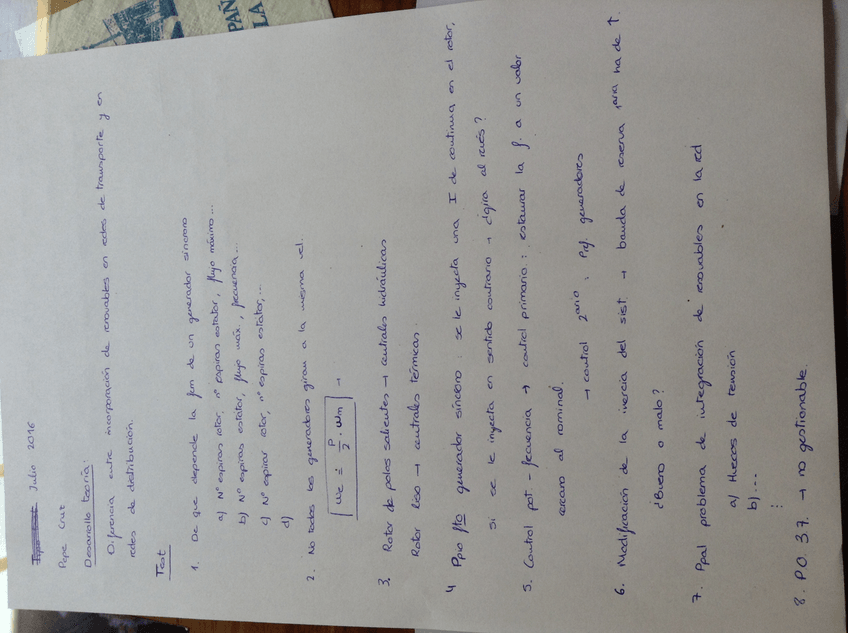 Julio 2016
Pepe Cruz
Desarrollo teoría:
Diferencia entre incorporación de renovables en redes de transporte y en
redes de distribución.
Test
1. De que depende la fem de un generador síncrono
a) Nº espiras rotor, nº espiras estator, flujo máximo...
b) Nº espiras estator, flujo máx., frecuencia...
c) Nº espiras rotor, nº espiras estator,...
d)
2. No todos los generadores giran a la misma vel.
We = P/2 · Wm →
3. Rotor de polos salientes → centrales hidráulicas
Rotor liso → centrales térmicas.
4 Ppio fto generador síncrono: se le inyecta una I de continua en el rotor,
si se le inyecta en sentido contrario → ¿gira al revés?
5. Control pot-frecuencia → control primario: estaurar la f. a un valor
cercano al nominal.
→ control 2ario, Pref. generadores
6. Modificación de la inercia del sist → banda de reserva 1aria ha de ↑.
¿Bueno o malo?
7. Ppal problema de integración de renovables en la red
a) Huecos de tensión
b) ...
8. P.O. 3.7. → no gestionable
PAÑ
LA